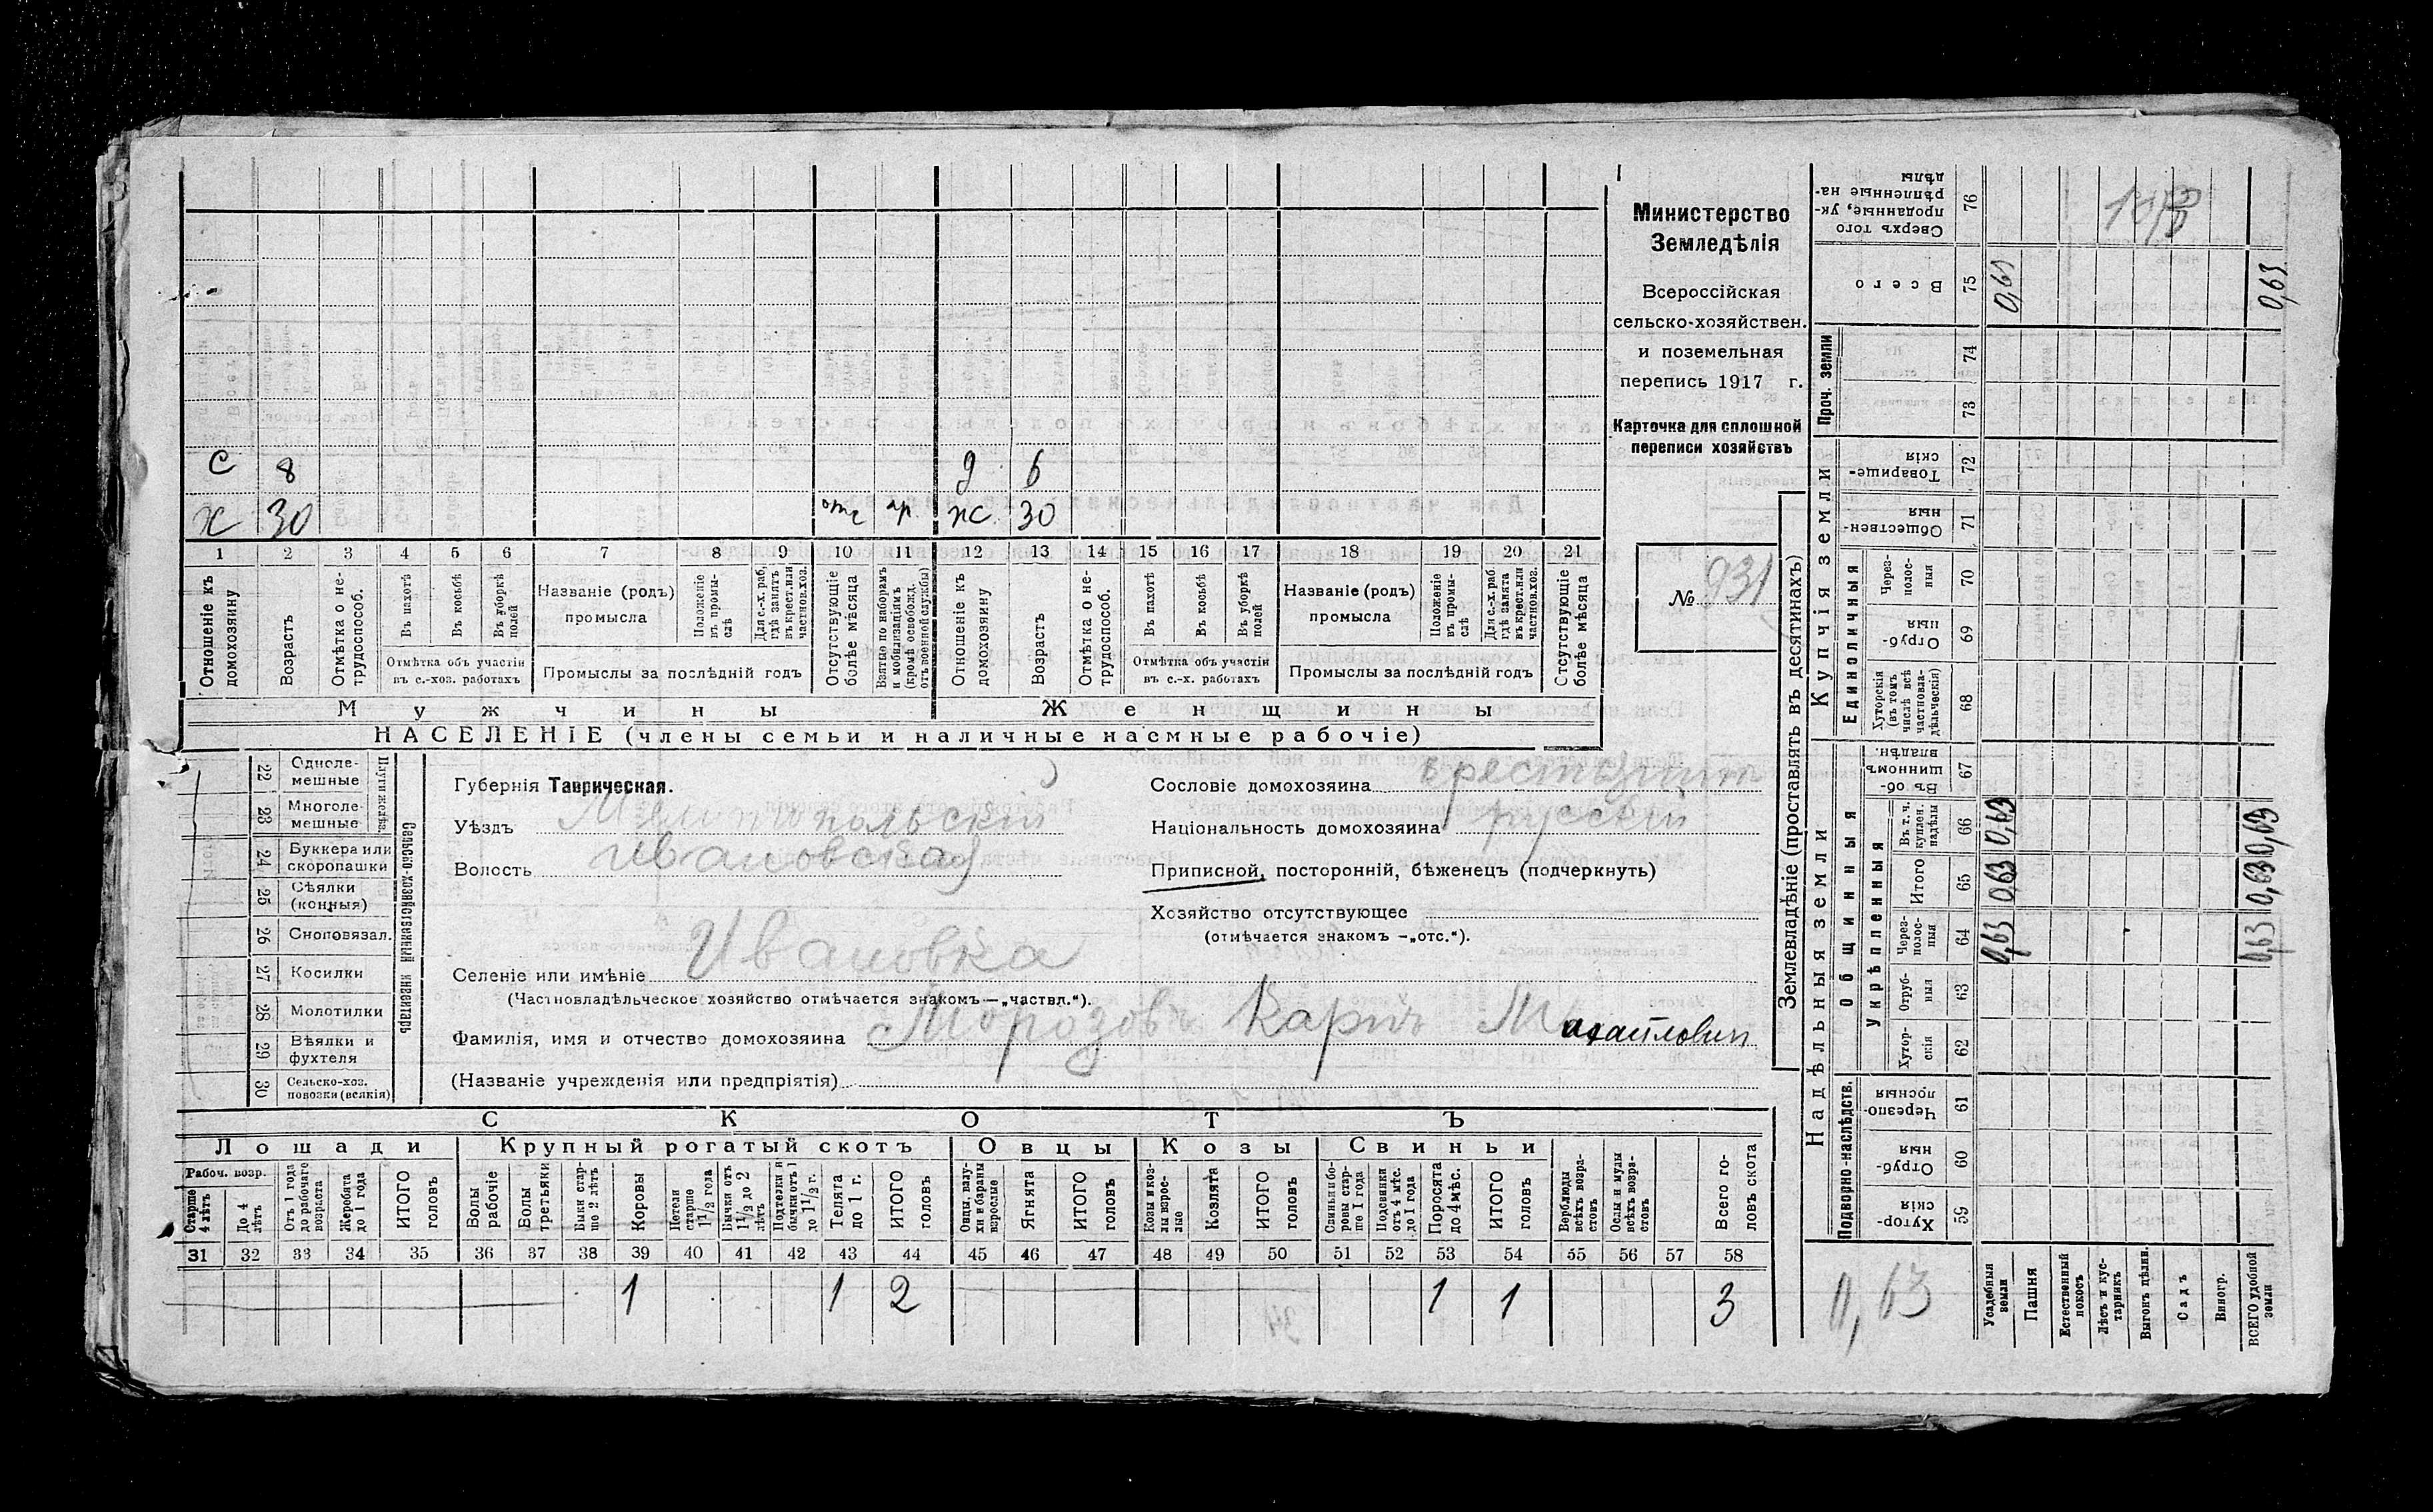 Министерство
Земледѣлія
Всероссійская
сельско-хозяйствен.
и поземельная
перепись 1917 г.
Карточка для сплошной
переписи хозяйствъ
№ 931
с 8 д 6
х 30 отс ар. ж 30
1 2 3 4 5 6 7 8 9 10 11 12 13 14 15 16 17 18 19 20 21
Отношеніе къ домохозяину
Возрастъ
Отмѣтка о нетрудоспособ.
Въ пахотѣ
Въ косьбѣ
Въ уборкѣ полей
Отмѣтка объ участіи въ с.-хоз. работахъ
Названіе (родъ) промысла
Положеніе въ промыслѣ
Для с.-х. раб. гдѣ занятъ въ крест. или частнов. хоз.
Промыслы за послѣдній годъ
Отсутствующіе болѣе мѣсяца
Взятые по наборамъ и мобилизаціямъ (кромѣ освобожд. отъ военной службы)
Отношеніе къ домохозяину
Возрастъ
Отмѣтка о нетрудоспособ.
Въ пахотѣ
Въ косьбѣ
Въ уборкѣ полей
Отмѣтка объ участіи въ с.-х. работахъ
Названіе (родъ) промысла
Положеніе въ промыслѣ
Для с.-х. раб. гдѣ занята въ крест. или частнов. хоз.
Промыслы за послѣдній годъ
Отсутствующіе болѣе мѣсяца
Мужчины Женщины
НАСЕЛЕНІЕ (члены семьи и наличные наемные рабочіе)
Сельско-хозяйственный инвентарь
22 Однолемешные
23 Многолемешные
24 Буккера или скоропашки
25 Сѣялки (конныя)
26 Сноповязал.
27 Косилки
28 Молотилки
29 Вѣялки и фухтеля
30 Сельско-хоз. повозки (всякія)
Губернія Таврическая.
Уѣздъ Мелитопольскій
Волость Ивановская
Селеніе или имѣніе Ивановка
(Частновладѣльческое хозяйство отмѣчается знакомъ — „частвл.“).
Фамилія, имя и отчество домохозяина Морозовъ Карпъ Михайлович
(Названіе учрежденія или предпріятія)
Сословіе домохозяина крестьянинъ
Національность домохозяина русскій
Приписной, посторонній, бѣженецъ (подчеркнуть)
Хозяйство отсутствующее
(отмѣчается знакомъ — „отс.“).
СКОТЪ
Лошади Крупный рогатый скотъ Овцы Козы Свиньи
Рабоч. возр.
Старше 4 лѣтъ
До 4 лѣтъ
Отъ 1 года до рабочаго возраста
Жеребята до 1 года
ИТОГО головъ
Волы рабочіе
Волы третьяки
Быки старше 2 лѣтъ
Коровы
Нетели старше 1½ года
Бычки отъ 1½ до 2 лѣтъ
Подтелки и бычки отъ 1 до 1½ г.
Телята до 1 г.
ИТОГО головъ
Овцы, валухи и бараны взрослые
Ягнята
ИТОГО головъ
Козы и козлы взрослые
Козлята
ИТОГО головъ
Свиньи боровы старше 1 года
Подсвинки отъ 4 мѣс. до 1 года
Поросята до 4 мѣс.
ИТОГО головъ
Верблюды всѣхъ возрастовъ
Ослы и мулы всѣхъ возрастовъ
Всего головъ скота
31 32 33 34 35 36 37 38 39 40 41 42 43 44 45 46 47 48 49 50 51 52 53 54 55 56 57 58
1 1 2 1 1 3
Землевладѣніе (проставлять въ десятинахъ)
Надѣльныя земли
Купчія земли
Проч. земли
Подворно-наслѣдств.
Общинныя
Укрѣпленныя
Единоличныя
Сверхъ того проданные, укрѣпленные надѣлы 76
Всего 75 0,63 0,63
74
73
Товарищескія 72
Общественныя 71
Черезполосныя 70
Отрубныя 69
Хуторскія (въ томъ числѣ всѣ частновладѣльческія) 68
Въ общинномъ владѣн. 67
Въ т. ч. куплен. надѣлы 66 0,63 0,63
Итого 65 0,63 0,63
Черезполосныя 64 0,63 0,63
Отрубныя 63
Хуторскія 62
Черезполосныя 61
Отрубныя 60
Хуторскія 59
0,63
Усадебныя земли
Пашня
Естественный покосъ
Лѣсъ и кустарникъ
Выгонъ цѣлин.
Садъ
Виногр.
ВСЕГО удобной земли